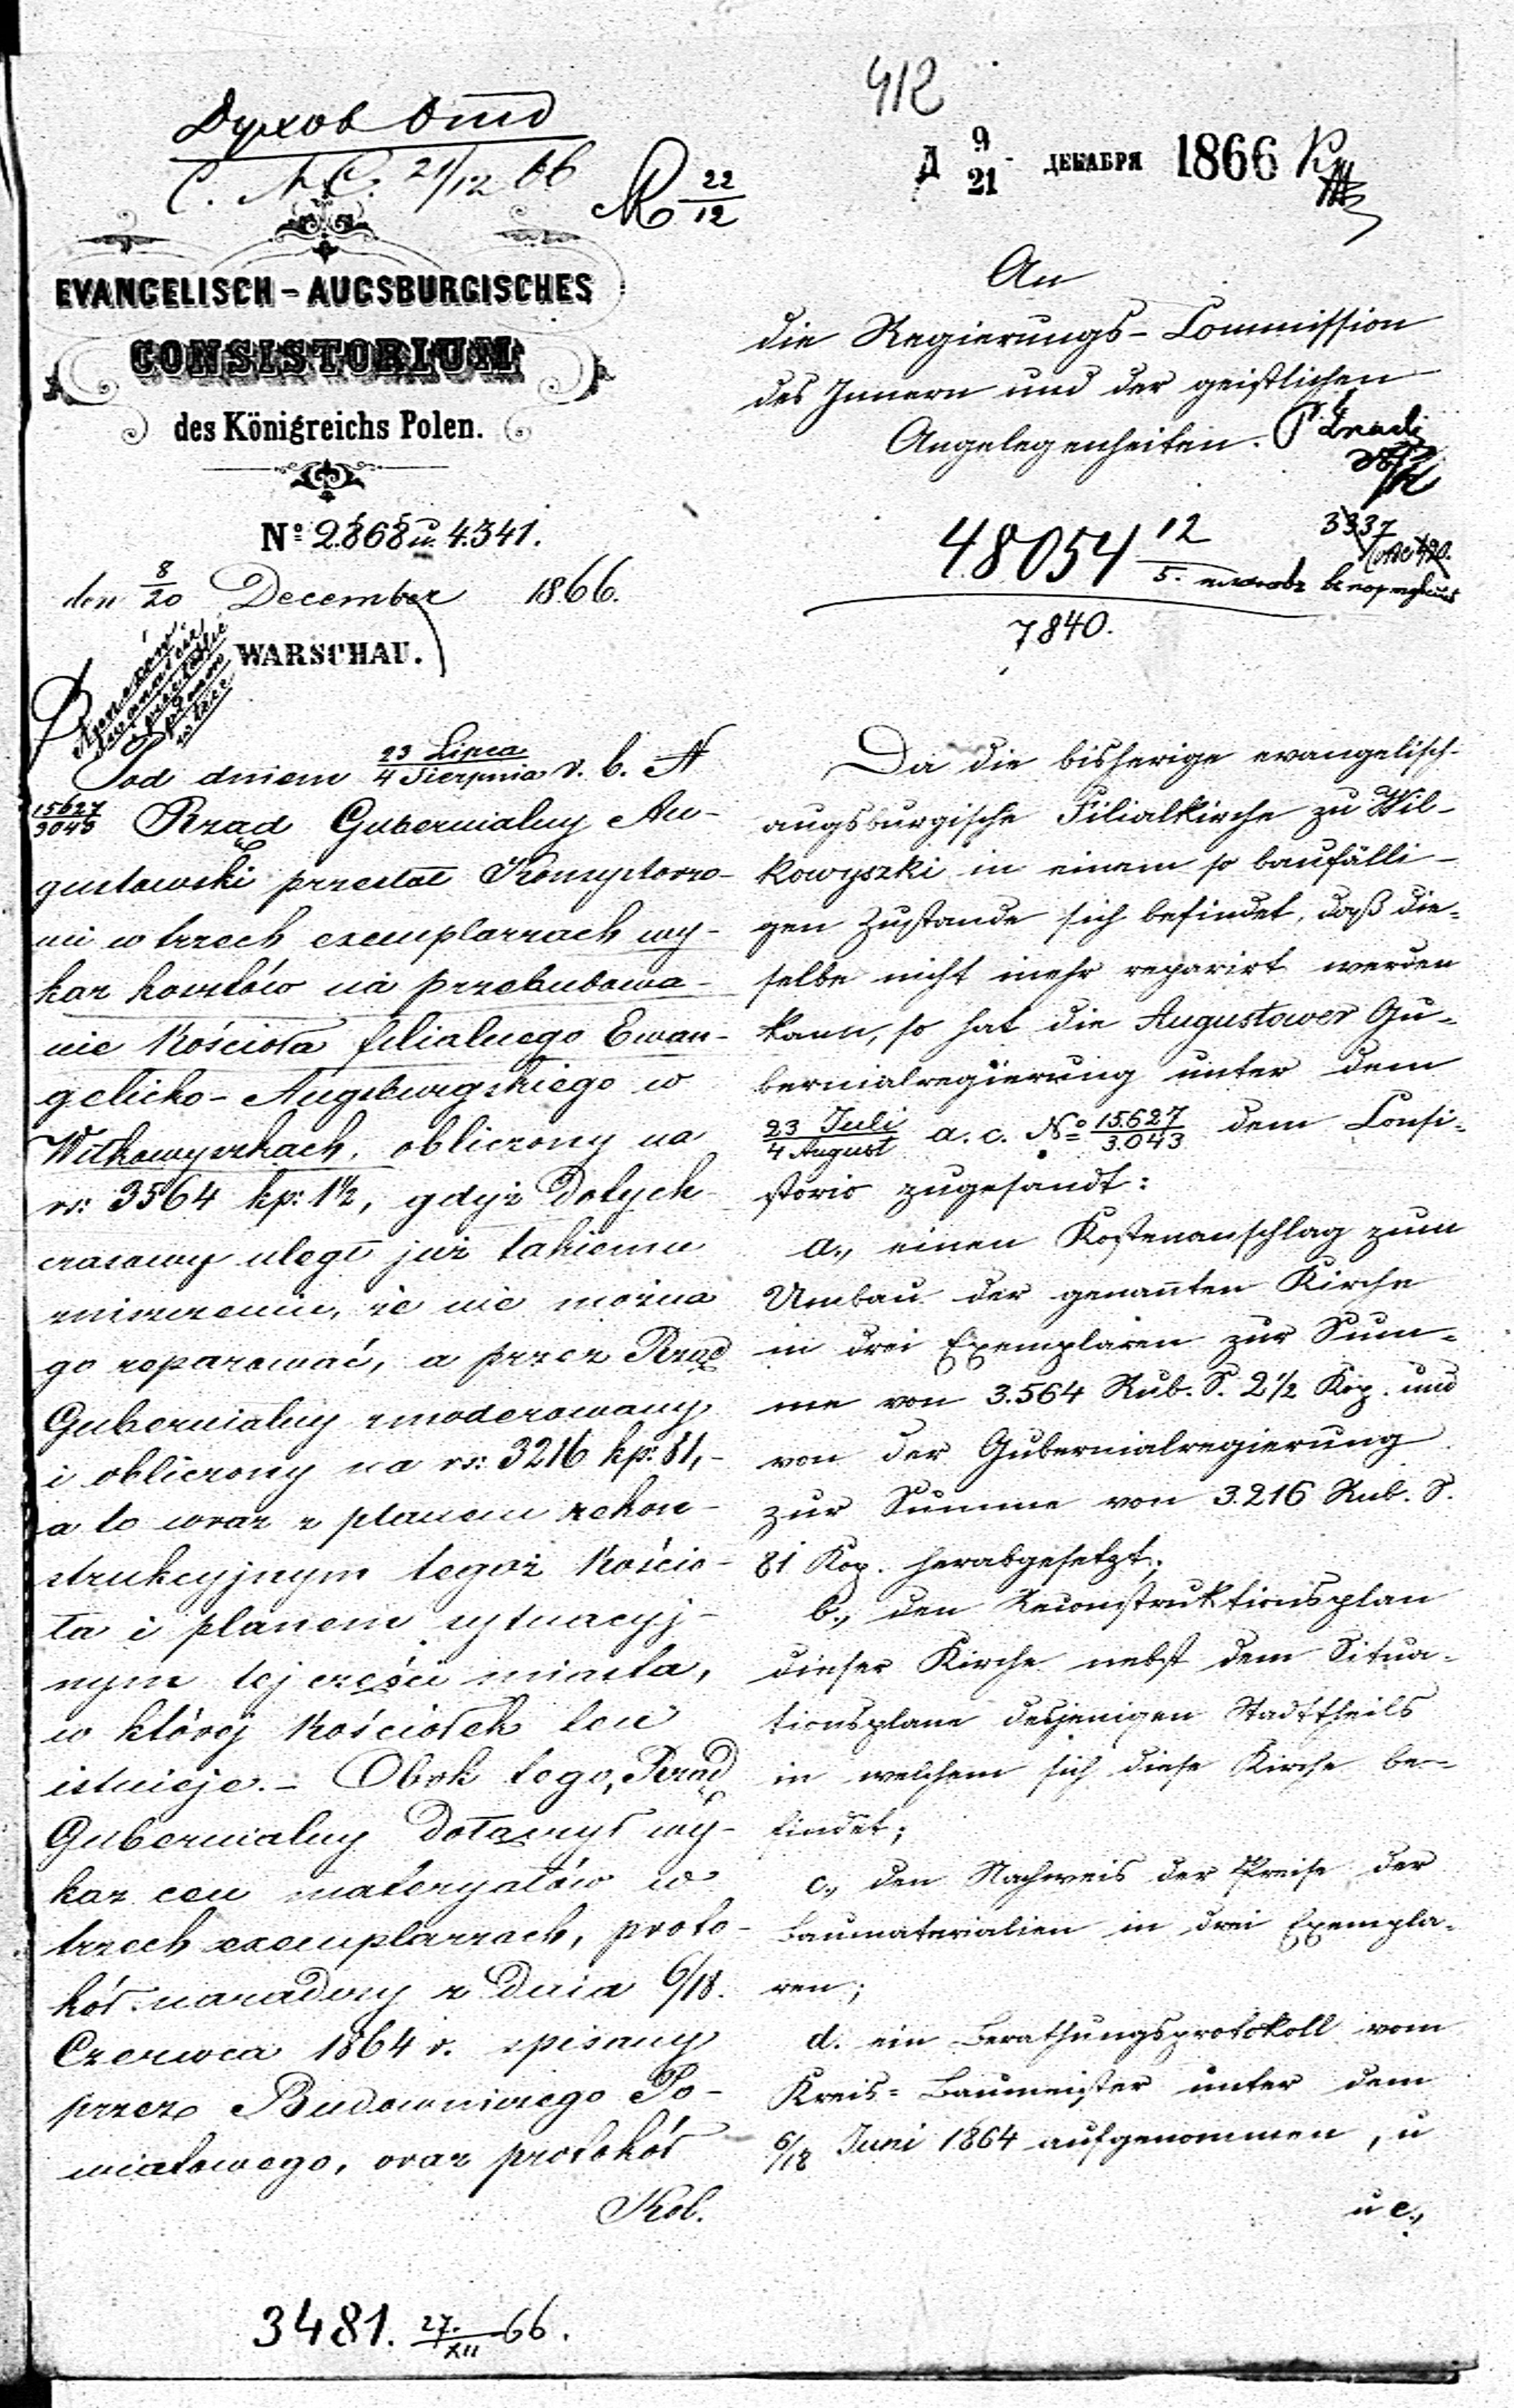 412
Духов Отд
С. 21/12 66
22/12
Д 9/21 ДЕКАБРЯ 1866
EVANGELISCH-AUGSBURGISCHES
CONSISTORIUM
des Königreichs Polen.
Nº 2868 u. 4.341.
den 8/20 December 1866.
WARSCHAU.
An
die Regierungs-Commission
des Innern und der geistlichen
Angelegenheiten.
48054 12/5.
3337
7840.
Pod dniem 23 Lipca/4 Sierpnia r. b. N
15627/3043 Rząd Gubernialny Au-
gustowski przesłał Konsystorzo-
wi w trzech exemplarzach wy-
kaz kosztów na przebudowa-
nie Kościoła filialnego Ewan-
gelicko-Augsburgskiego w
Wiłkowyszkach, obliczony na
rs: 3564 kp: 1½, gdyż dotych-
czasowy uległ już takiemu
zniszczeniu, że nie można
go reparować, a przez Rząd
Gubernialny zmoderowany
i obliczony na rs: 3216 kp: 81,-
a to wraz z planem rekon-
strukcyjnym tegoż Kościo-
ła i planem sytuacyj-
nym tej części miasta,
w której Kościołek ten
istnieje.- Obok tego, Rząd
Gubernialny dołączył wy-
kaz cen materyałów w
trzech exemplarzach, proto-
kół naradczy z dnia 6/18.
Czerwca 1864 r. spisany
przez Budowniczego Po-
wiatowego, oraz protokół
Da die bisherige evangelisch-
augsburgische Filialkirche zu Wil-
kowyszki in einem so baufälli-
gen Zustande sich befindet, daß die-
selbe nicht mehr reparirt werden
kann, so hat die Augustower Gu-
bernialregierung unter dem
23 Juli/4 August a. c. Nº 15.627/3.043 dem Consi-
storio zugesandt:
a., einen Kostenanschlag zum
Umbau der genannten Kirche
in drei Exemplaren zur Sum-
me von 3.564 Rub. S. 2½ Kop. und
von der Gubernialregierung
zur Summe von 3.216 Rub. S.
81 Kop. herabgesetzt;
b., den Reconstruktionsplan
dieser Kirche nebst dem Situa-
tionsplane desjenigen Stadttheils
in welchem sich diese Kirche be-
findet;
c., den Nachweis der Preise der
Baumaterialien in drei Exempla-
ren;
d. ein Berathungsprotokoll vom
Kreis-Baumeister unter dem
6/18 Juni 1864 aufgenommen, u
u e.,
3481. 27./XII 66.